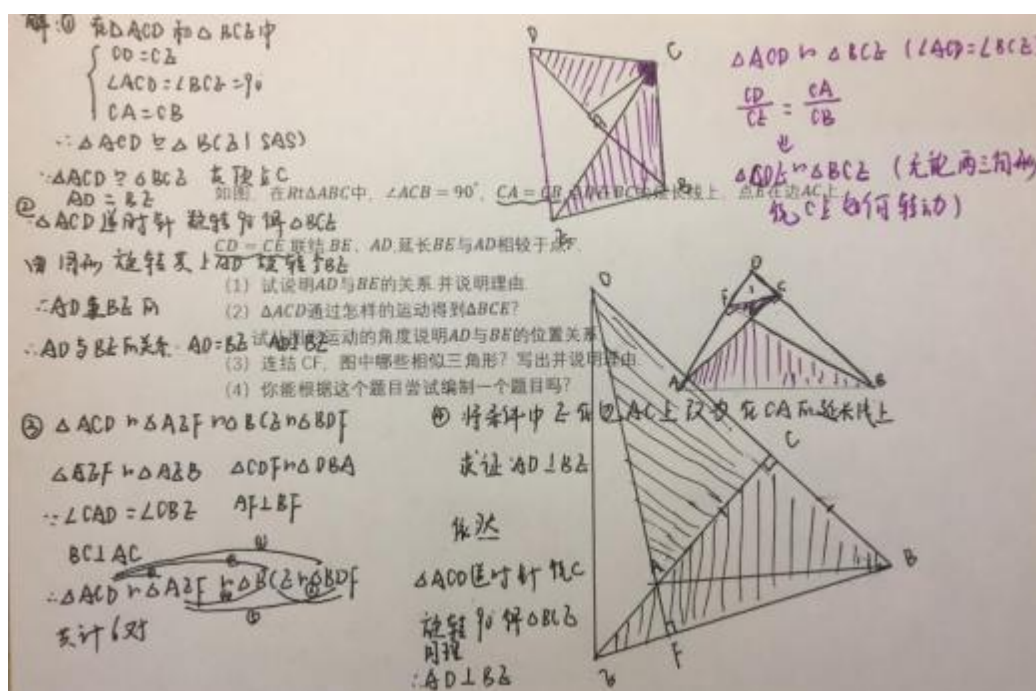 解：① 在△ACD和△BCE中
CD=CE
∠ACD=∠BCE=90
CA=CB
∴△ACD≌△BCE(SAS)
∵△ACD≌△BCE
AD=BE
②
△ACD逆时针旋转90得△BCE
旋转
∴AD
∴AD与BE的关系 AD=BE AD⊥BE
如图，在Rt△ABC中，∠ACB=90°，CA=CB
上，点E在边AC上
CD=CE 联结BE、AD,延长BE与AD相较于点F.
(1) 试说明AD与BE的关系.并说明理由.
(2) △ACD通过怎样的运动得到△BCE?
运动的角度说明AD与BE的位置关系
(3) 连结CF，图中哪些相似三角形？写出并说明理由.
(4) 你能根据这个题目尝试编制一个题目吗？
③ △ACD∽△AEF∽△BCE∽△BDF
△AEF∽△AEB △CDF∽△DBA
∵∠CAD=∠DBE AF⊥BF
BC⊥AC
∴△ACD∽△AEF∽△BCE∽△BDF
共计6对
④ 将条件中E在边AC上改为在CA的延长线上
求证:AD⊥BE
依然
△ACD逆时针绕C
旋转90得△BCE
同理
∴AD⊥BE
△ACD∽△BCE (∠ACD=∠BCE)
CD/CE=CA/CB
△CDE∽△BCE (无论两三角形
绕C点如何转动)
D
C
B
E
D
F
C
A
B
D
C
A
B
F
E